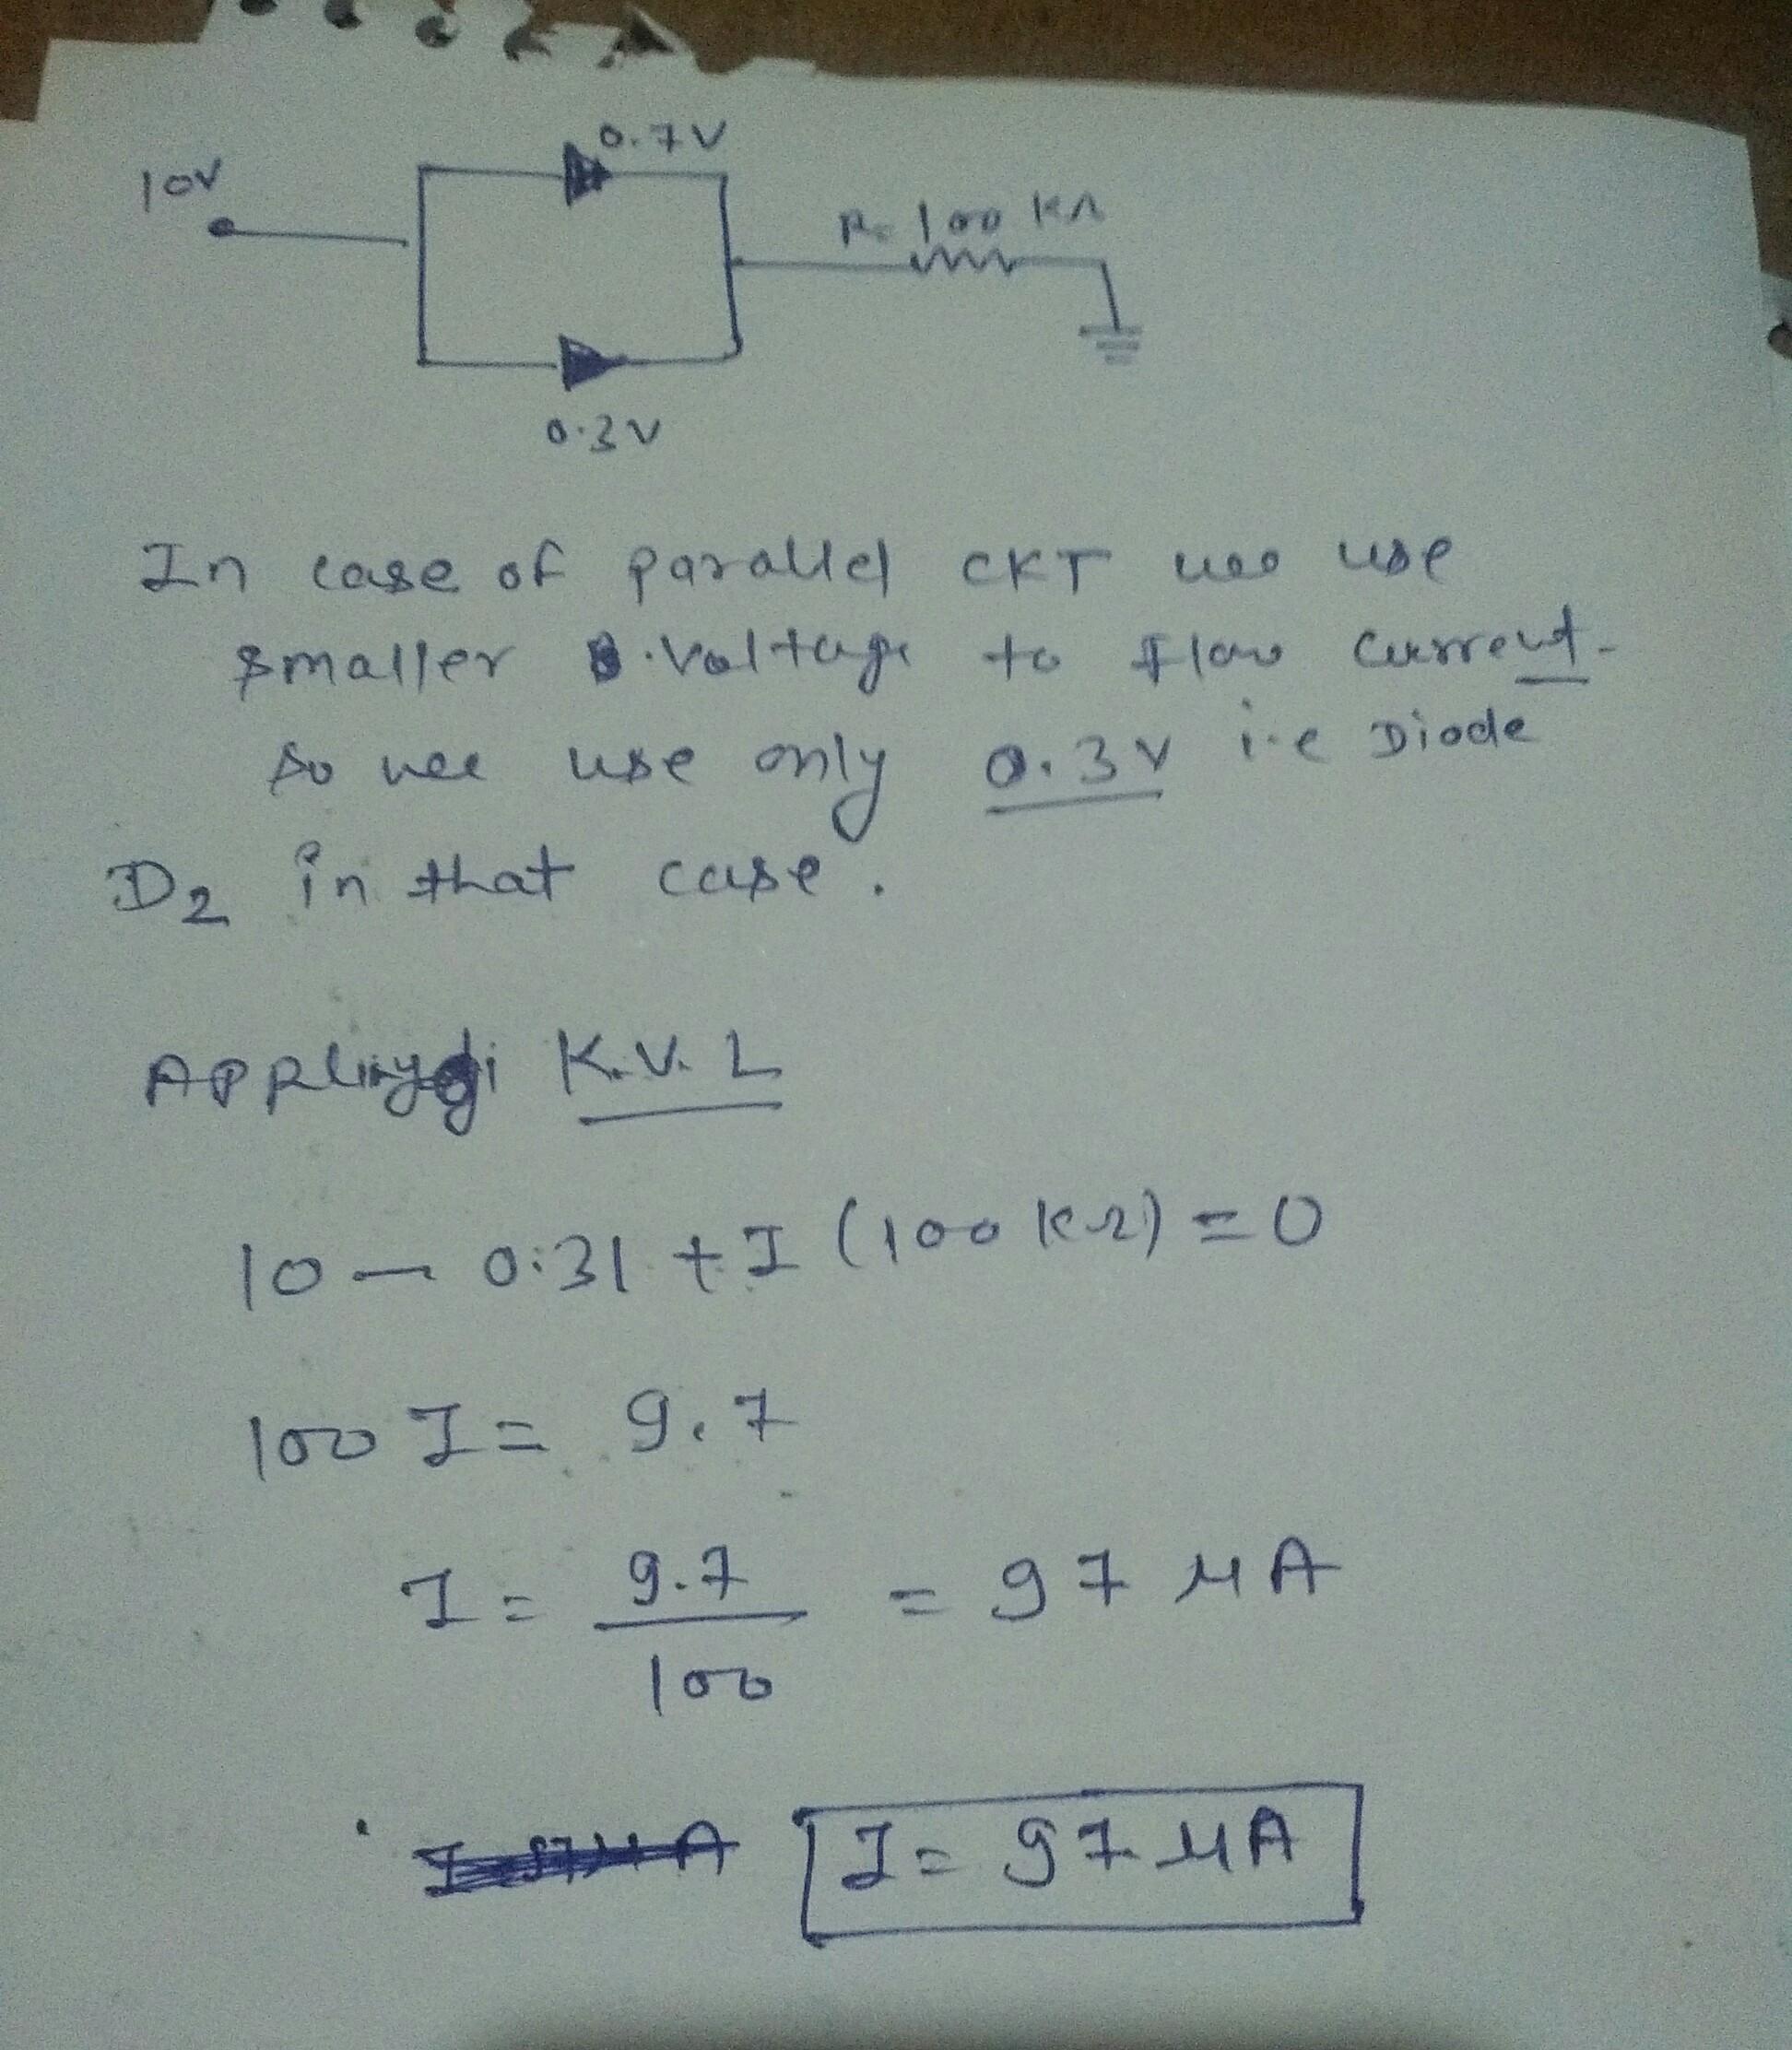 0.7V
10V
R= 100 KΩ
0.3V
In case of parallel CKT we use
smaller voltage to flow current.
so we use only 0.3V i.e Diode
D2 in that case.
K.V.L
10 - 0.31 + I (100 KΩ) = 0
100 I = 9.7
I = 9.7 / 100 = 97 μA
I = 97 μA